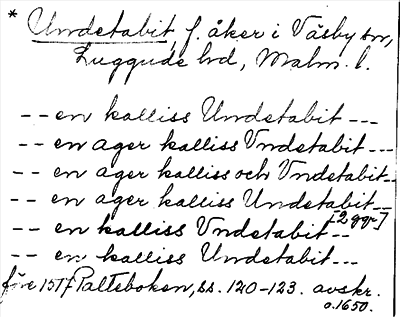 * Undetabit, f. åker i Väsby sn,
Luggude hd, Malm. l.
-- en kalliss Undetabit ---
-- en ager kalliss Vndetabit ---
-- en ager kalliss och Vndetabit --
-- en ager kalliss Undetabit --
[2 ggr]
-- en kalliss Vndetabit --
-- en kalliss Undetabit ---
före 1577 Palteboken, ss. 120-123. avskr.
o. 1650.